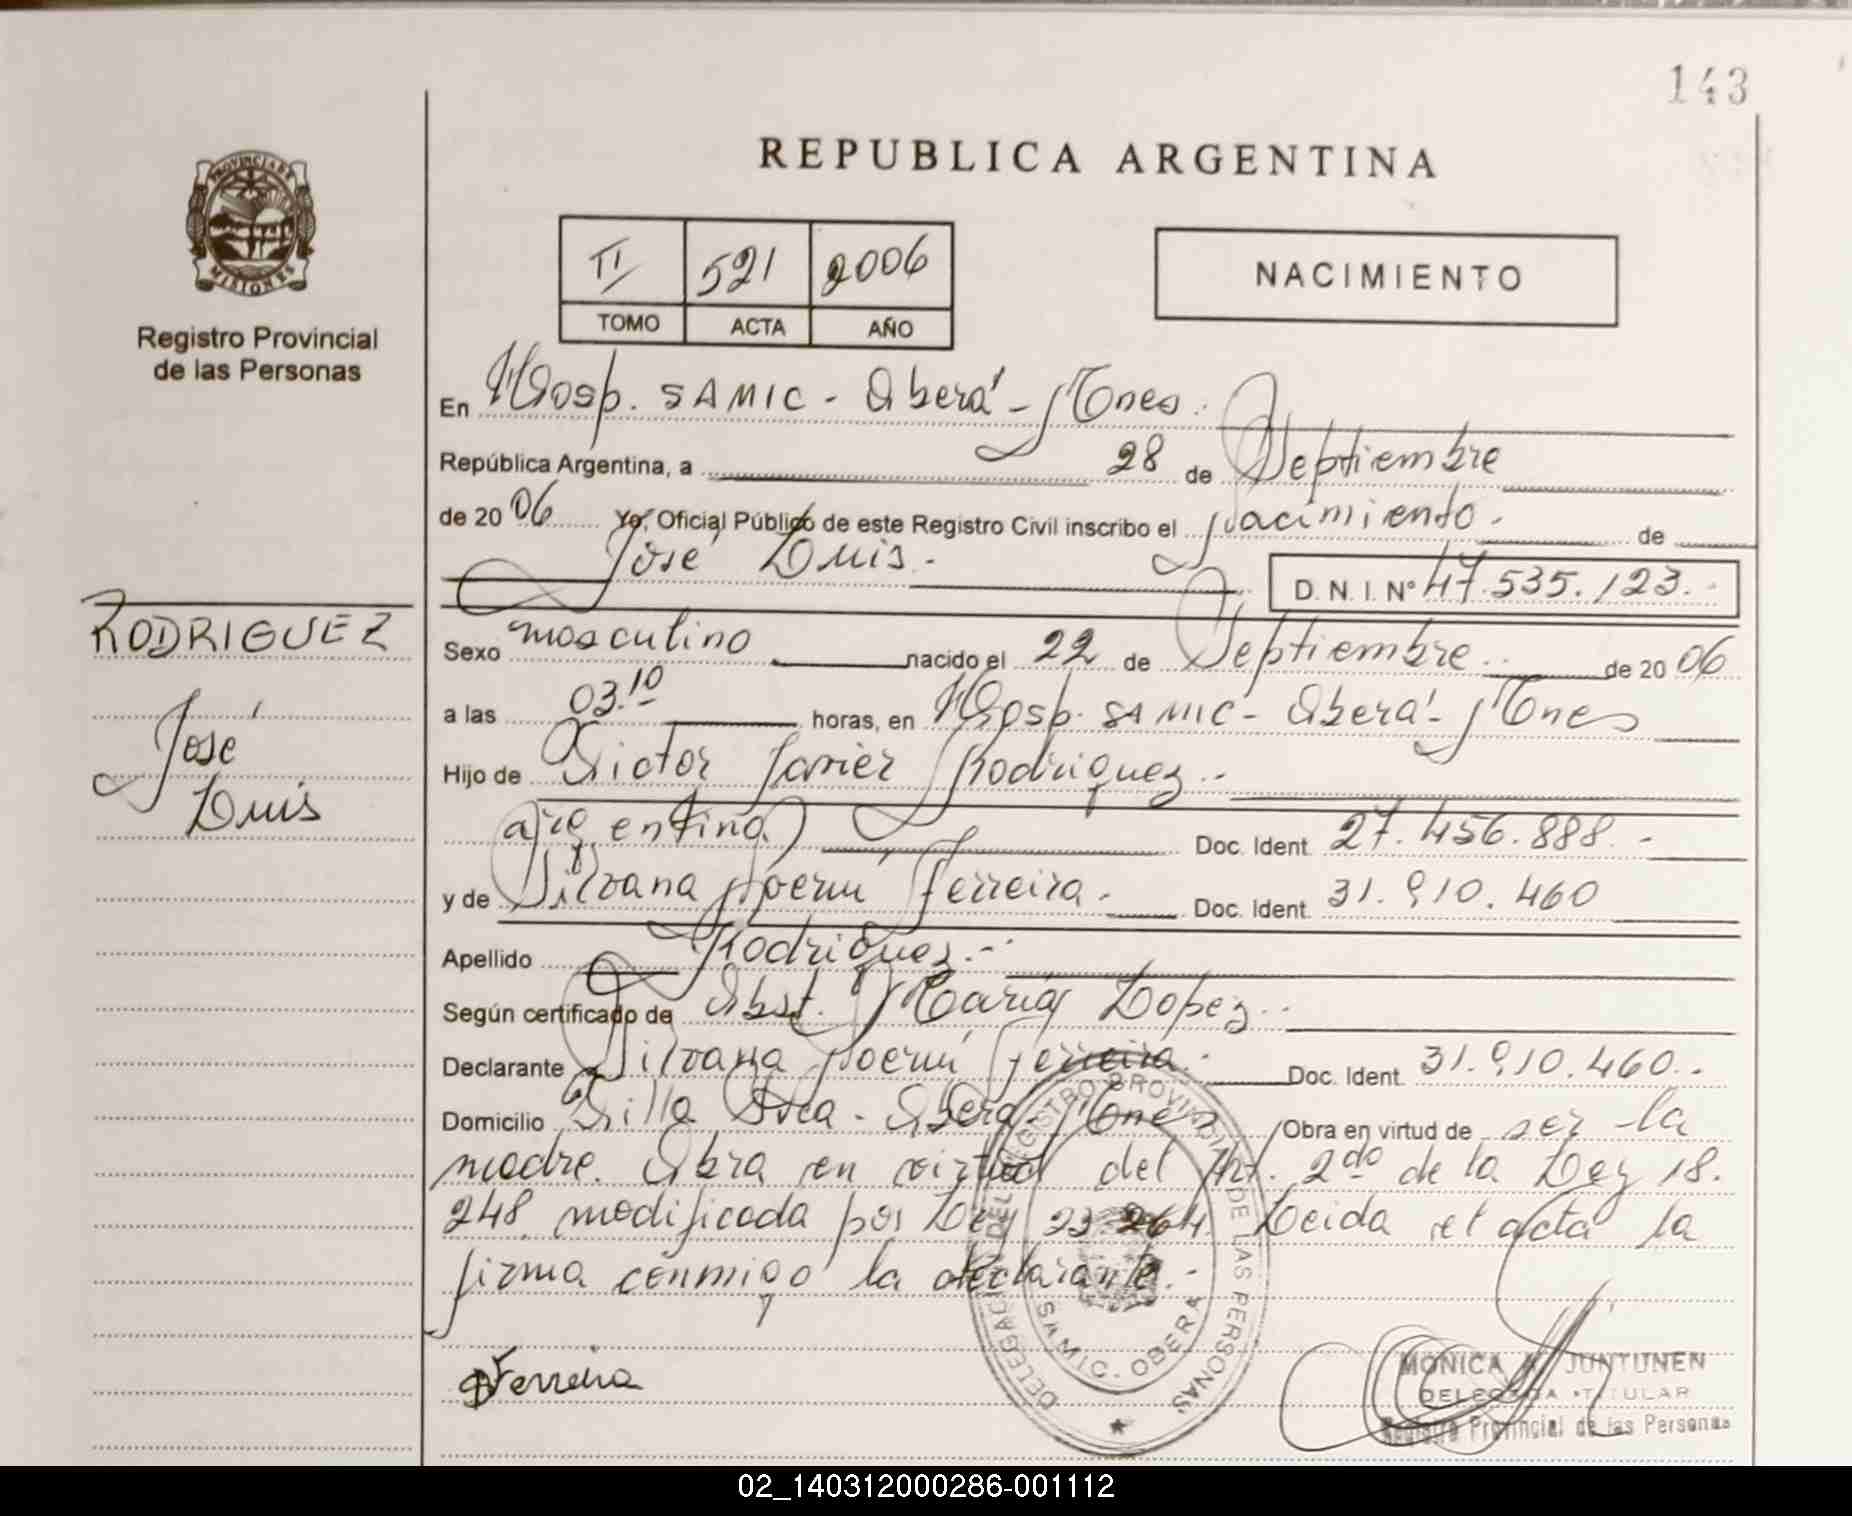 143
REPUBLICA ARGENTINA
PROVINCIA DE
MISIONES
Registro Provincial
de las Personas
II 521 2006
TOMO ACTA AÑO
NACIMIENTO
En Hosp. SAMIC - Oberá - Mnes.
República Argentina, a 28 de Septiembre
de 2006 Yo, Oficial Público de este Registro Civil inscribo el nacimiento. de
José Luis.- D. N. I. Nº 47.535.123.-
RODRIGUEZ
José
Luis
Sexo masculino nacido el 22 de Septiembre.. de 2006
a las 03.10 horas, en Hosp. SAMIC - Oberá - Mnes
Hijo de Victor Javier Rodriguez.-
argentino Doc. Ident. 27.456.888.-
y de Silvana Noemí Ferreira.- Doc. Ident. 31.910.460
Apellido Rodriguez.-
Según certificado de Obst. María Lopez.-
Declarante Silvana Noemí Ferreira.- Doc. Ident. 31.910.460.-
Domicilio Villa - Oberá - Mnes Obra en virtud de ser la
madre. Obra en virtud del Art. 2do de la Ley 18.
248 modificada por Ley 23.264. Leida el acta la
firma conmigo la declarante.-
Ferreira
DELEGACION DEL REGISTRO PROVINCIAL DE LAS PERSONAS
SAMIC. OBERA
MONICA JUNTUNEN
DELEGADA TITULAR
Registro Provincial de las Personas
02_140312000286-001112